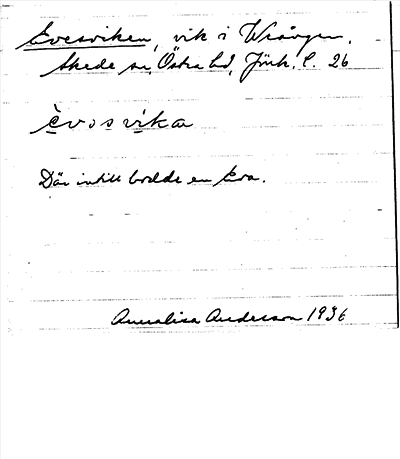 Evesviken, vik i Wrången.
Skede sn, Östra hd, Jönk. l. 26
èvəsvika
Där intill bodde en Eva.
Annalisa Anderson 1936